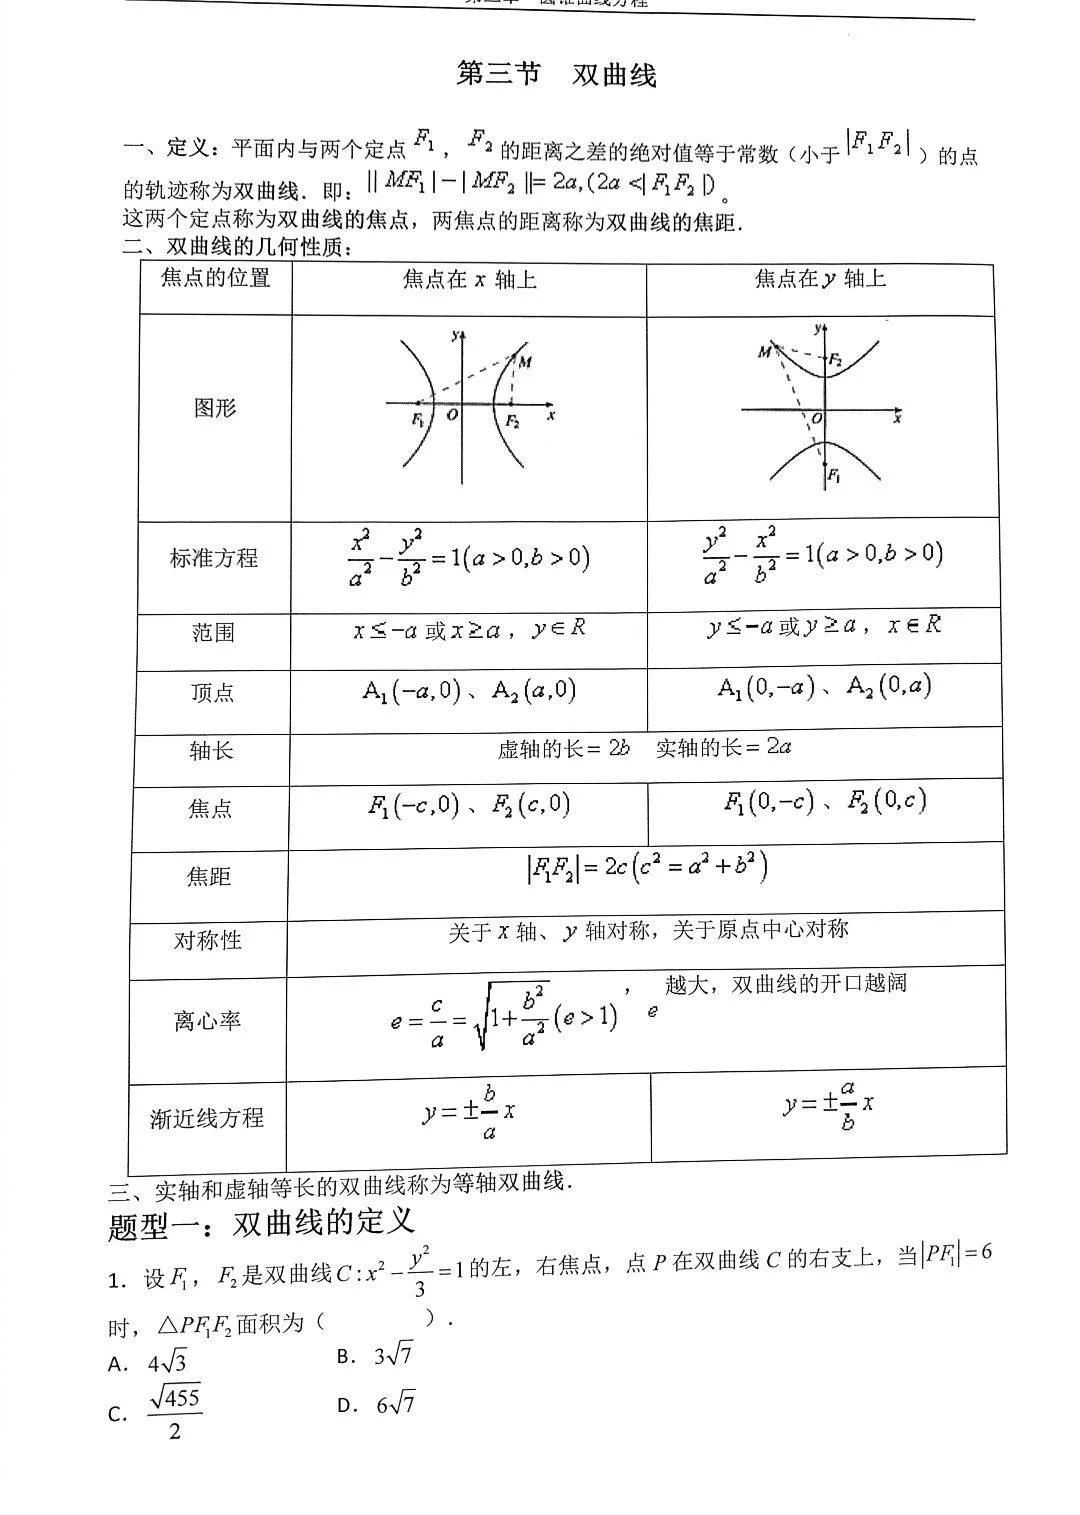 第三节 双曲线
一、定义：平面内与两个定点 F₁，F₂ 的距离之差的绝对值等于常数（小于|F₁F₂|）的点
的轨迹称为双曲线．即：|| MF₁ |−| MF₂ ||= 2a,(2a <| F₁F₂ |)。
这两个定点称为双曲线的焦点，两焦点的距离称为双曲线的焦距．
二、双曲线的几何性质：
焦点的位置 焦点在 x 轴上 焦点在 y 轴上
图形
y M F₁ O F₂ x
y M F₂ O x F₁
标准方程 x²/a² − y²/b² = 1(a > 0,b > 0) y²/a² − x²/b² = 1(a > 0,b > 0)
范围 x ≤ −a 或 x ≥ a，y ∈ R y ≤ −a 或 y ≥ a，x ∈ R
顶点 A₁(−a,0)、A₂(a,0) A₁(0,−a)、A₂(0,a)
轴长 虚轴的长= 2b 实轴的长= 2a
焦点 F₁(−c,0)、F₂(c,0) F₁(0,−c)、F₂(0,c)
焦距 |F₁F₂| = 2c(c² = a² + b²)
对称性 关于 x 轴、y 轴对称，关于原点中心对称
离心率 e = c/a = √(1+b²/a²) (e > 1)，e 越大，双曲线的开口越阔
渐近线方程 y = ±(b/a)x y = ±(a/b)x
三、实轴和虚轴等长的双曲线称为等轴双曲线．
题型一：双曲线的定义
1．设 F₁，F₂ 是双曲线 C : x² − y²/3 = 1 的左，右焦点，点 P 在双曲线 C 的右支上，当|PF₁| = 6
时，△PF₁F₂ 面积为（ ）．
A． 4√3 B． 3√7
C． √455/2 D． 6√7